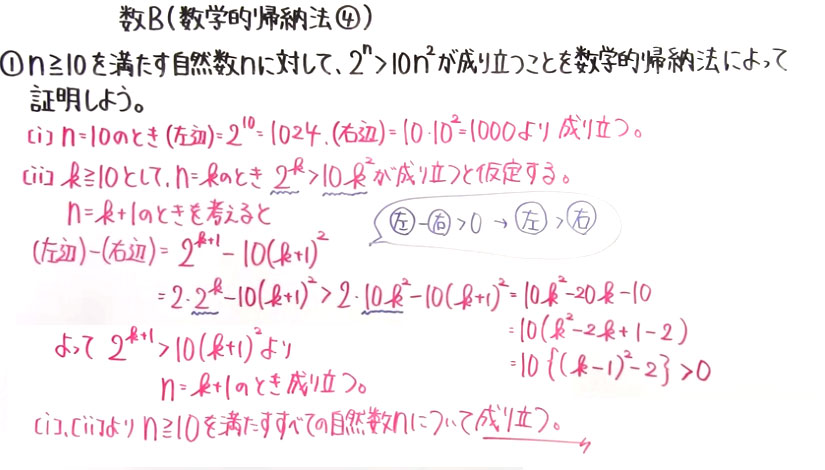 数B(数学的帰納法④)
① n≧10を満たす自然数nに対して、2ⁿ>10n²が成り立つことを数学的帰納法によって
証明しよう。
[i] n=10のとき (左辺)=2¹⁰=1024, (右辺)=10・10²=1000より 成り立つ。
[ii] k≧10として、n=kのとき 2ᵏ>10k²が成り立つと仮定する。
n=k+1のときを考えると
㊧-㊨>0 → ㊧>㊨
(左辺)-(右辺)=2ᵏ⁺¹-10(k+1)²
=2・2ᵏ-10(k+1)²>2・10k²-10(k+1)²=10k²-20k-10
=10(k²-2k+1-2)
=10{(k-1)²-2}>0
よって 2ᵏ⁺¹>10(k+1)²より
n=k+1のとき成り立つ。
[i],[ii]より n≧10を満たすすべての自然数nについて成り立つ。